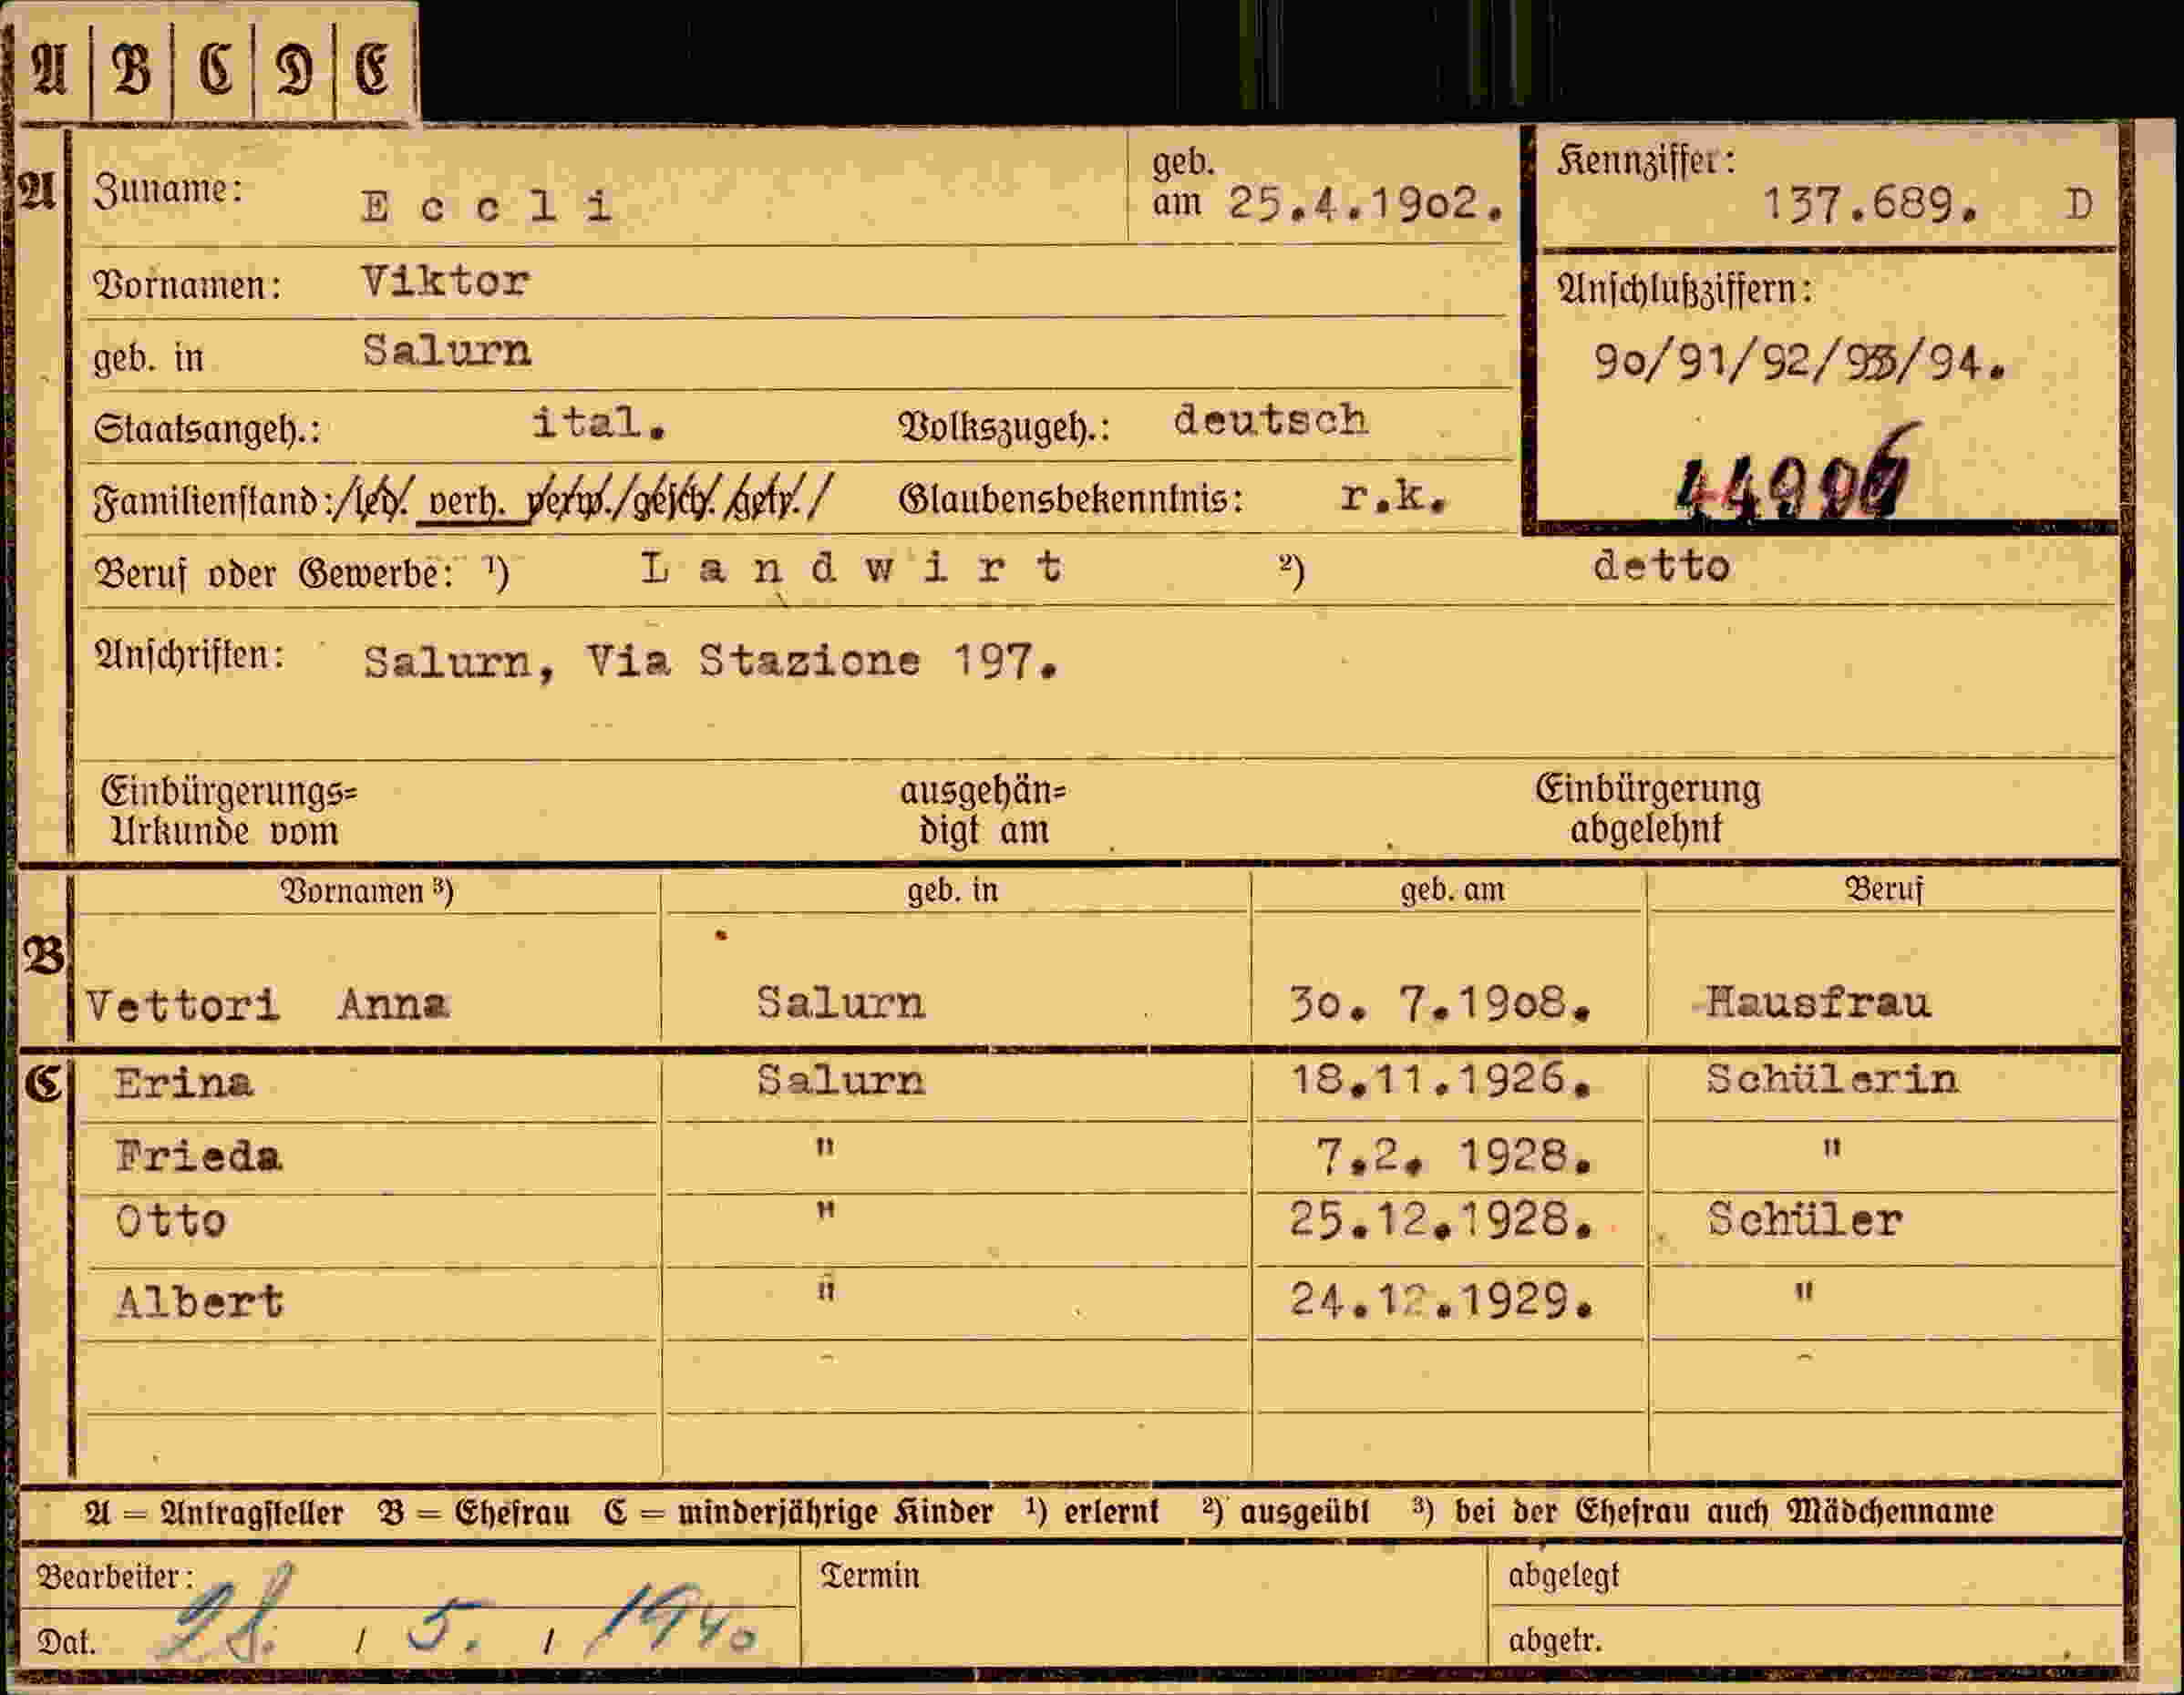 A B C D E
A Zuname: E c c l i geb. am 25.4.1902. Kennziffer: 137.689. D
Vornamen: Viktor Anschlußziffern:
geb. in Salurn 90/91/92/93/94.
Staatsangeh.: ital. Volkszugeh.: deutsch
Familienstand: led. verh. verw. gesch. getr. Glaubensbekenntnis: r.k.
Beruf oder Gewerbe: ¹) L a n d w i r t ²) detto
Anschriften: Salurn, Via Stazione 197.
Einbürgerungs= ausgehän= Einbürgerung
Urkunde vom digt am abgelehnt
Vornamen ³) geb. in geb. am Beruf
B
Vettori Anna Salurn 30. 7.1908. Hausfrau
C Erina Salurn 18.11.1926. Schülerin
Frieda " 7.2. 1928. "
Otto " 25.12.1928. Schüler
Albert " 24.12.1929. "
A = Antragsteller B = Ehefrau C = minderjährige Kinder ¹) erlernt ²) ausgeübt ³) bei der Ehefrau auch Mädchenname
Bearbeiter: Termin abgelegt
Dat. 28. / 5. / 1940 abgetr.